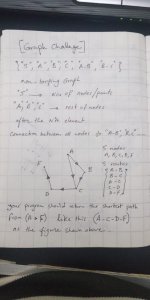 [Graph Challenge]
{"5", "A", "B", "C", "A-B", "B-C"}
non-looping Graph
"5" → Nos of nodes/points
"A", "B", "C" → rest of nodes
after the Nth element
Connection between all nodes
5 nodes
A, B, C, D, F
5 routes
A-B
B-C
C-D
D-F
A
F
B
D
C
your program should return the shortest path
from (A → F) like this (A-C-D-F)
as the figure shown above